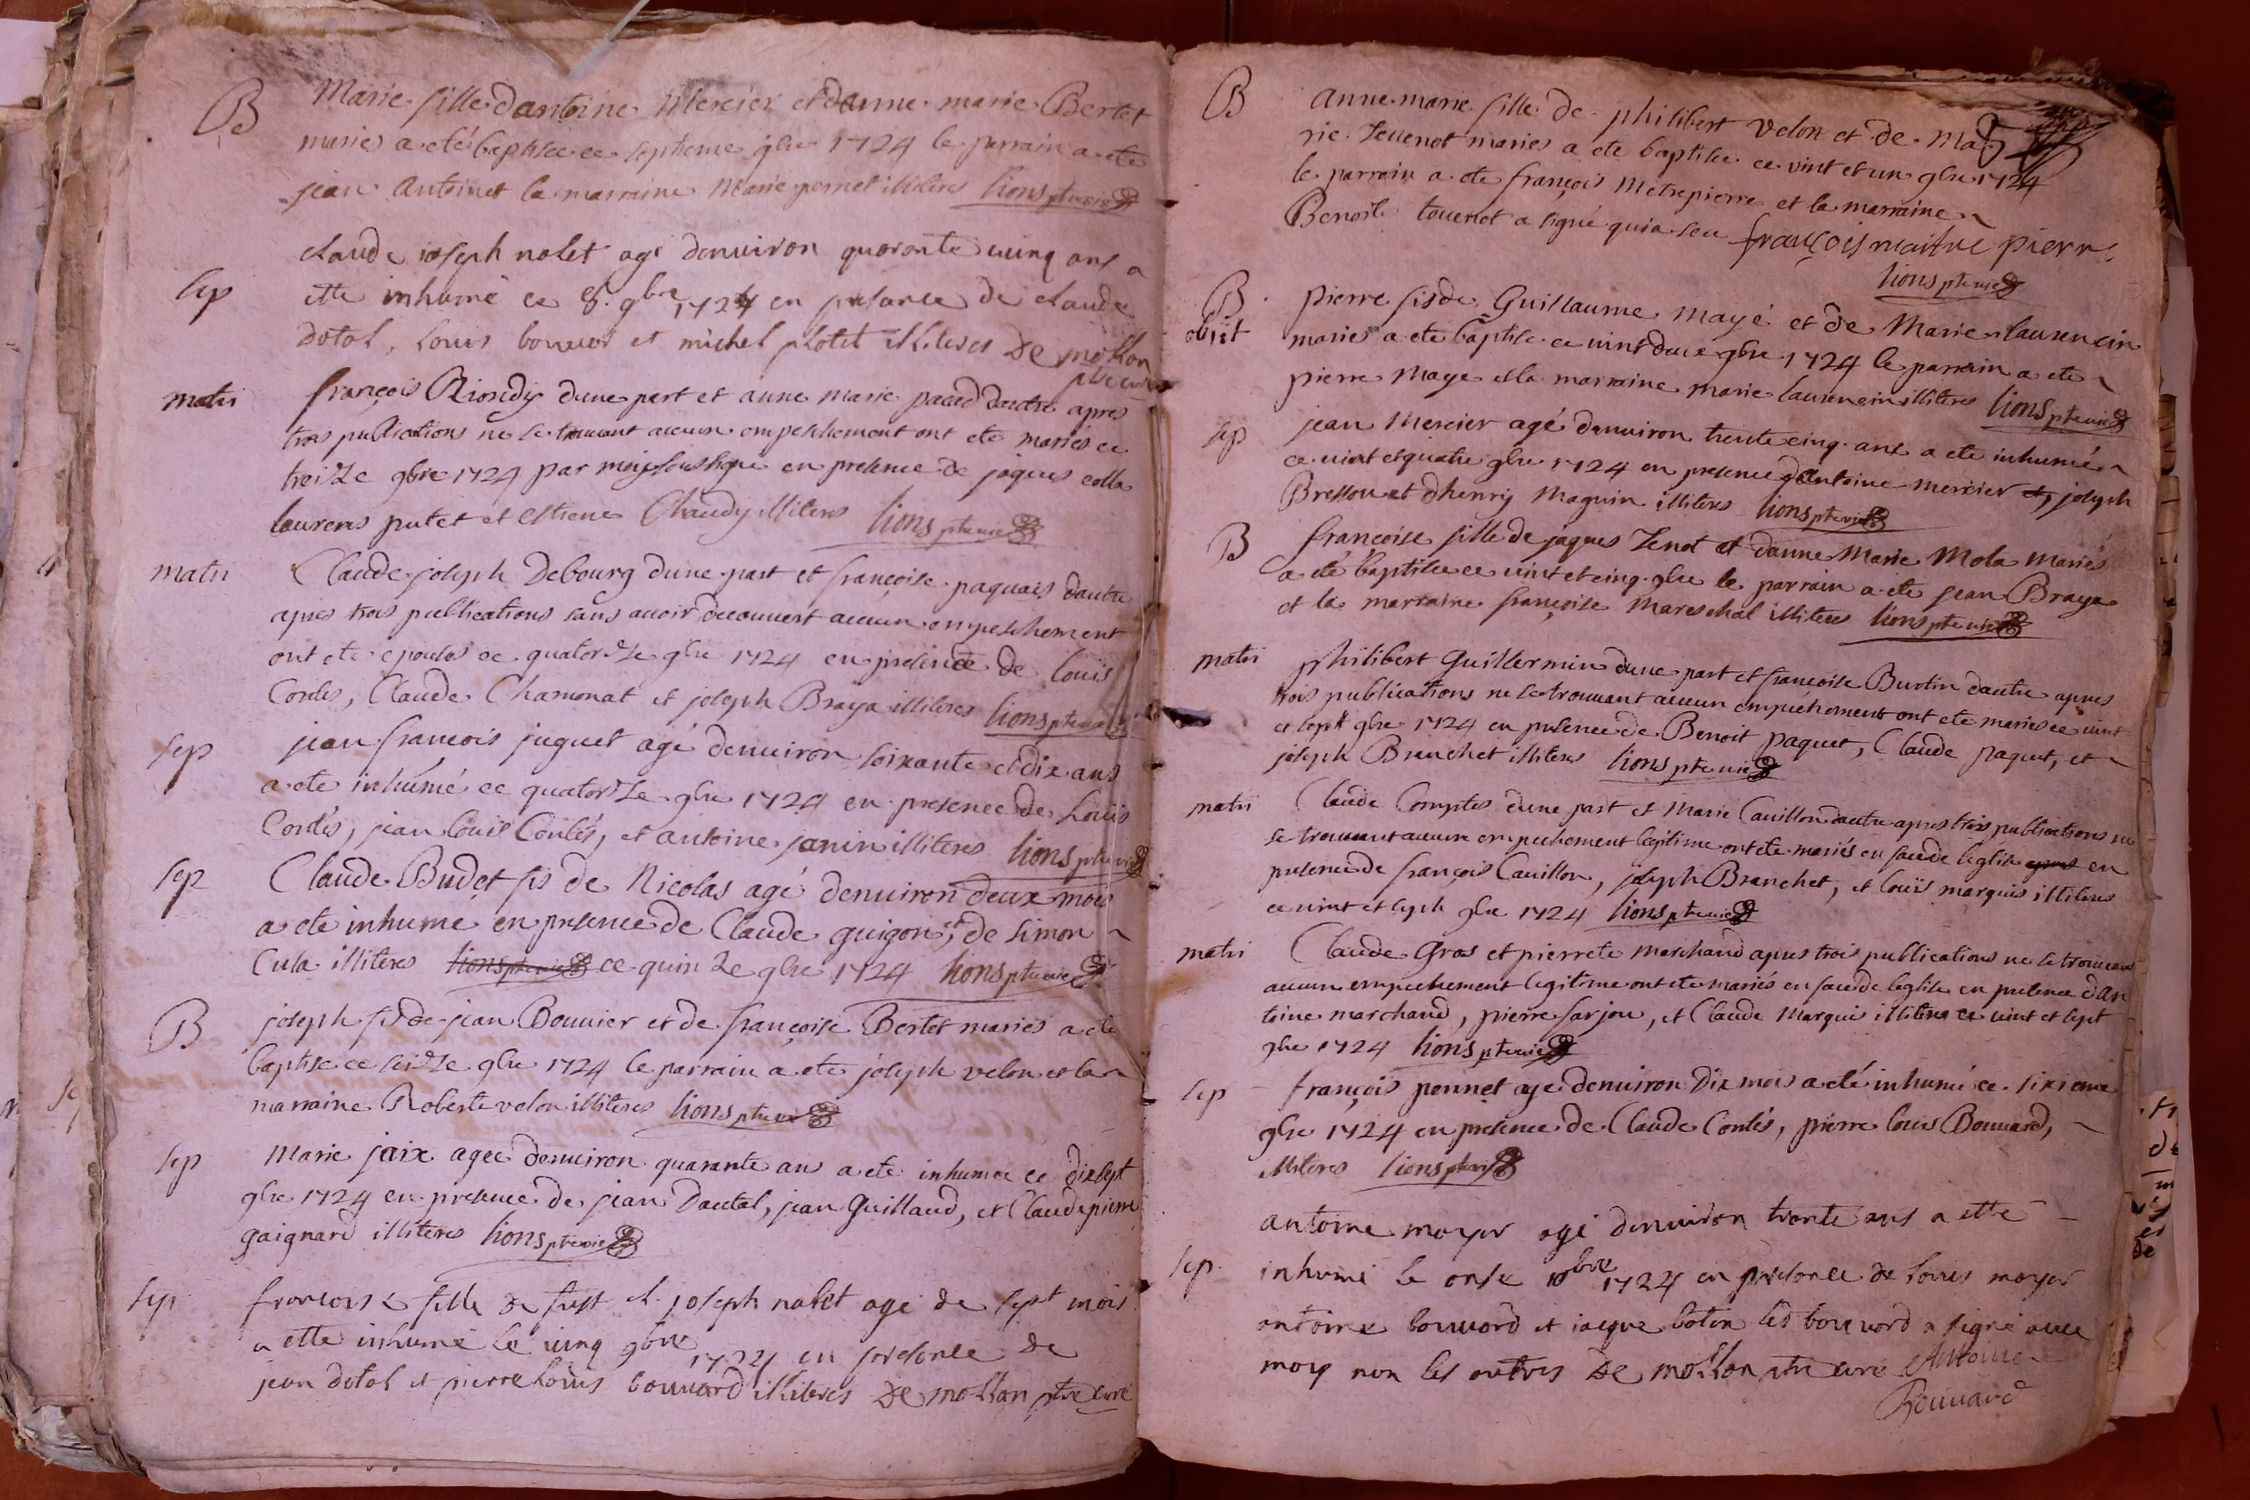 B Marie fille dantoine Mercier et danne marie Bertet
mariés a eté baptisée ce septieme 9bre 1724 le parrain a ete
jean Antoine et la marraine Marie pernet illiteres lions ptre vic
claude joseph nalet agé denviron quarante cinq ans a
sep ette inhumé ce 8. 9bre 1724 en presance de claude
dotal, louis bouvard et michel platet illiteres De mollon
ptre curé
matri françois Riondy dune part et anne marie pacad dautre apres
trois publications ne se trouvant aucun empeschement ont ete mariés ce
treize 9bre 1724 par moy soussigne en presence de jaques colla
laurens putet et estiene Chaudy illiteres lions ptre vic
matri Claude joseph Debourg dune part et françoise paquais dautre
apres trois publications sans avoir decouvert aucun empeschement
ont ete epousés ce quatorze 9bre 1724 en presence de louis
Contés, Claude Chamonat et joseph Braya illiteres lions ptre vic
sep jean françois juguet agé denviron soixante et dix ans
a ete inhumé ce quatorze 9bre 1724 en presence de louis
Contés, jean louis Contés, et antoine janin illiteres lions ptre vic
sep Claude Budet fis de Nicolas agé denviron deux mois
a ete inhumé en presence de Claude guigon, et de simon
Cula illiteres lions ptre vic ce quinze 9bre 1724 lions ptre vic
B joseph fis de jean Bouvier et de françoise Bertet mariés a ete
baptise ce seize 9bre 1724 le parrain a ete joseph velon et la
marraine Roberte velon illiteres lions ptre vic
sep Marie jaix agée denviron quarante an a ete inhumée ce dixsept
9bre 1724 en presence de jean Dautal, jean Guillaud, et Claude pierre
gaignard illiteres lions ptre vic
sep francoise fille de fust cl. joseph nalet age de sept mois
a ette inhumé le cinq 9bre 1724 en presance de
jean dotal et pierre louis bouvard illiteres De mollon ptre curé
B Anne marie fille de philibert velon et de Ma
rie Tevenot mariés a ete baptisée ce vint et un 9bre 1724
le parrain a ete françois Metrepierre et la marraine
Benoite touenot a signé qui a seu françois maitre pierre
lions ptre vic
B pierre fis de Guillaume Mayé et de Marie laurencin
obiit mariés a ete baptise ce vint deux 9bre 1724 le parrain a ete
pierre Maye et la marraine marie laurencin illiteres lions ptre vic
sep jean Mercier agé denviron trente cinq ans a ete inhumé
ce vint et quatre 9bre 1724 en presence dantoine mercier et, joseph
Bressou et dhenry Maguin illiteres lions ptre vic
B françoise fille de jaques Tenot et danne Marie Mola mariés
a eté baptisée ce vint et cinq 9bre le parrain a ete jean Braya
et la marraine françoise Mareschal illiteres lions ptre vic
matri philibert Guillermin dune part et françoise Burtin dautre apres
trois publications ne se trouvant aucun empechement ont ete mariés ce vint
et sept 9bre 1724 en presence de Benoit paquet, Claude paquet, et
joseph Branchet illiteres lions ptre vic
matri Claude Comptes dune part et Marie Cavillon dautre apres trois publications ne
se trouvant aucun empechement legitime ont ete mariés en face de leglise apres en
presence de françois Cavillon, joseph Branchet, et louis marquis illiteres
ce vint et sept 9bre 1724 lions ptre vic
matri Claude Gros et pierrete Marchand apres trois publications ne se trouvant
aucun empechement legitime ont ete mariés en face de leglise en presence dan
toine marchand, pierre farjou, et Claude Marquis illiteres ce vint et sept
9bre 1724 lions ptre vic
sep françois ponnet age denviron Dix mois a eté inhumé ce sixieme
9bre 1724 en presence de Claude Contés, pierre louis Bouvard,
illiteres lions ptre vic
antoine moyer agé denviron trante ans a ette
sep. inhumé le onse 10bre 1724 en presance de louis moyer
antoine bouvard et iacque botin led bouvard a signé avec
moy non les autres De mollon ptre curé Antoine
Bouvard